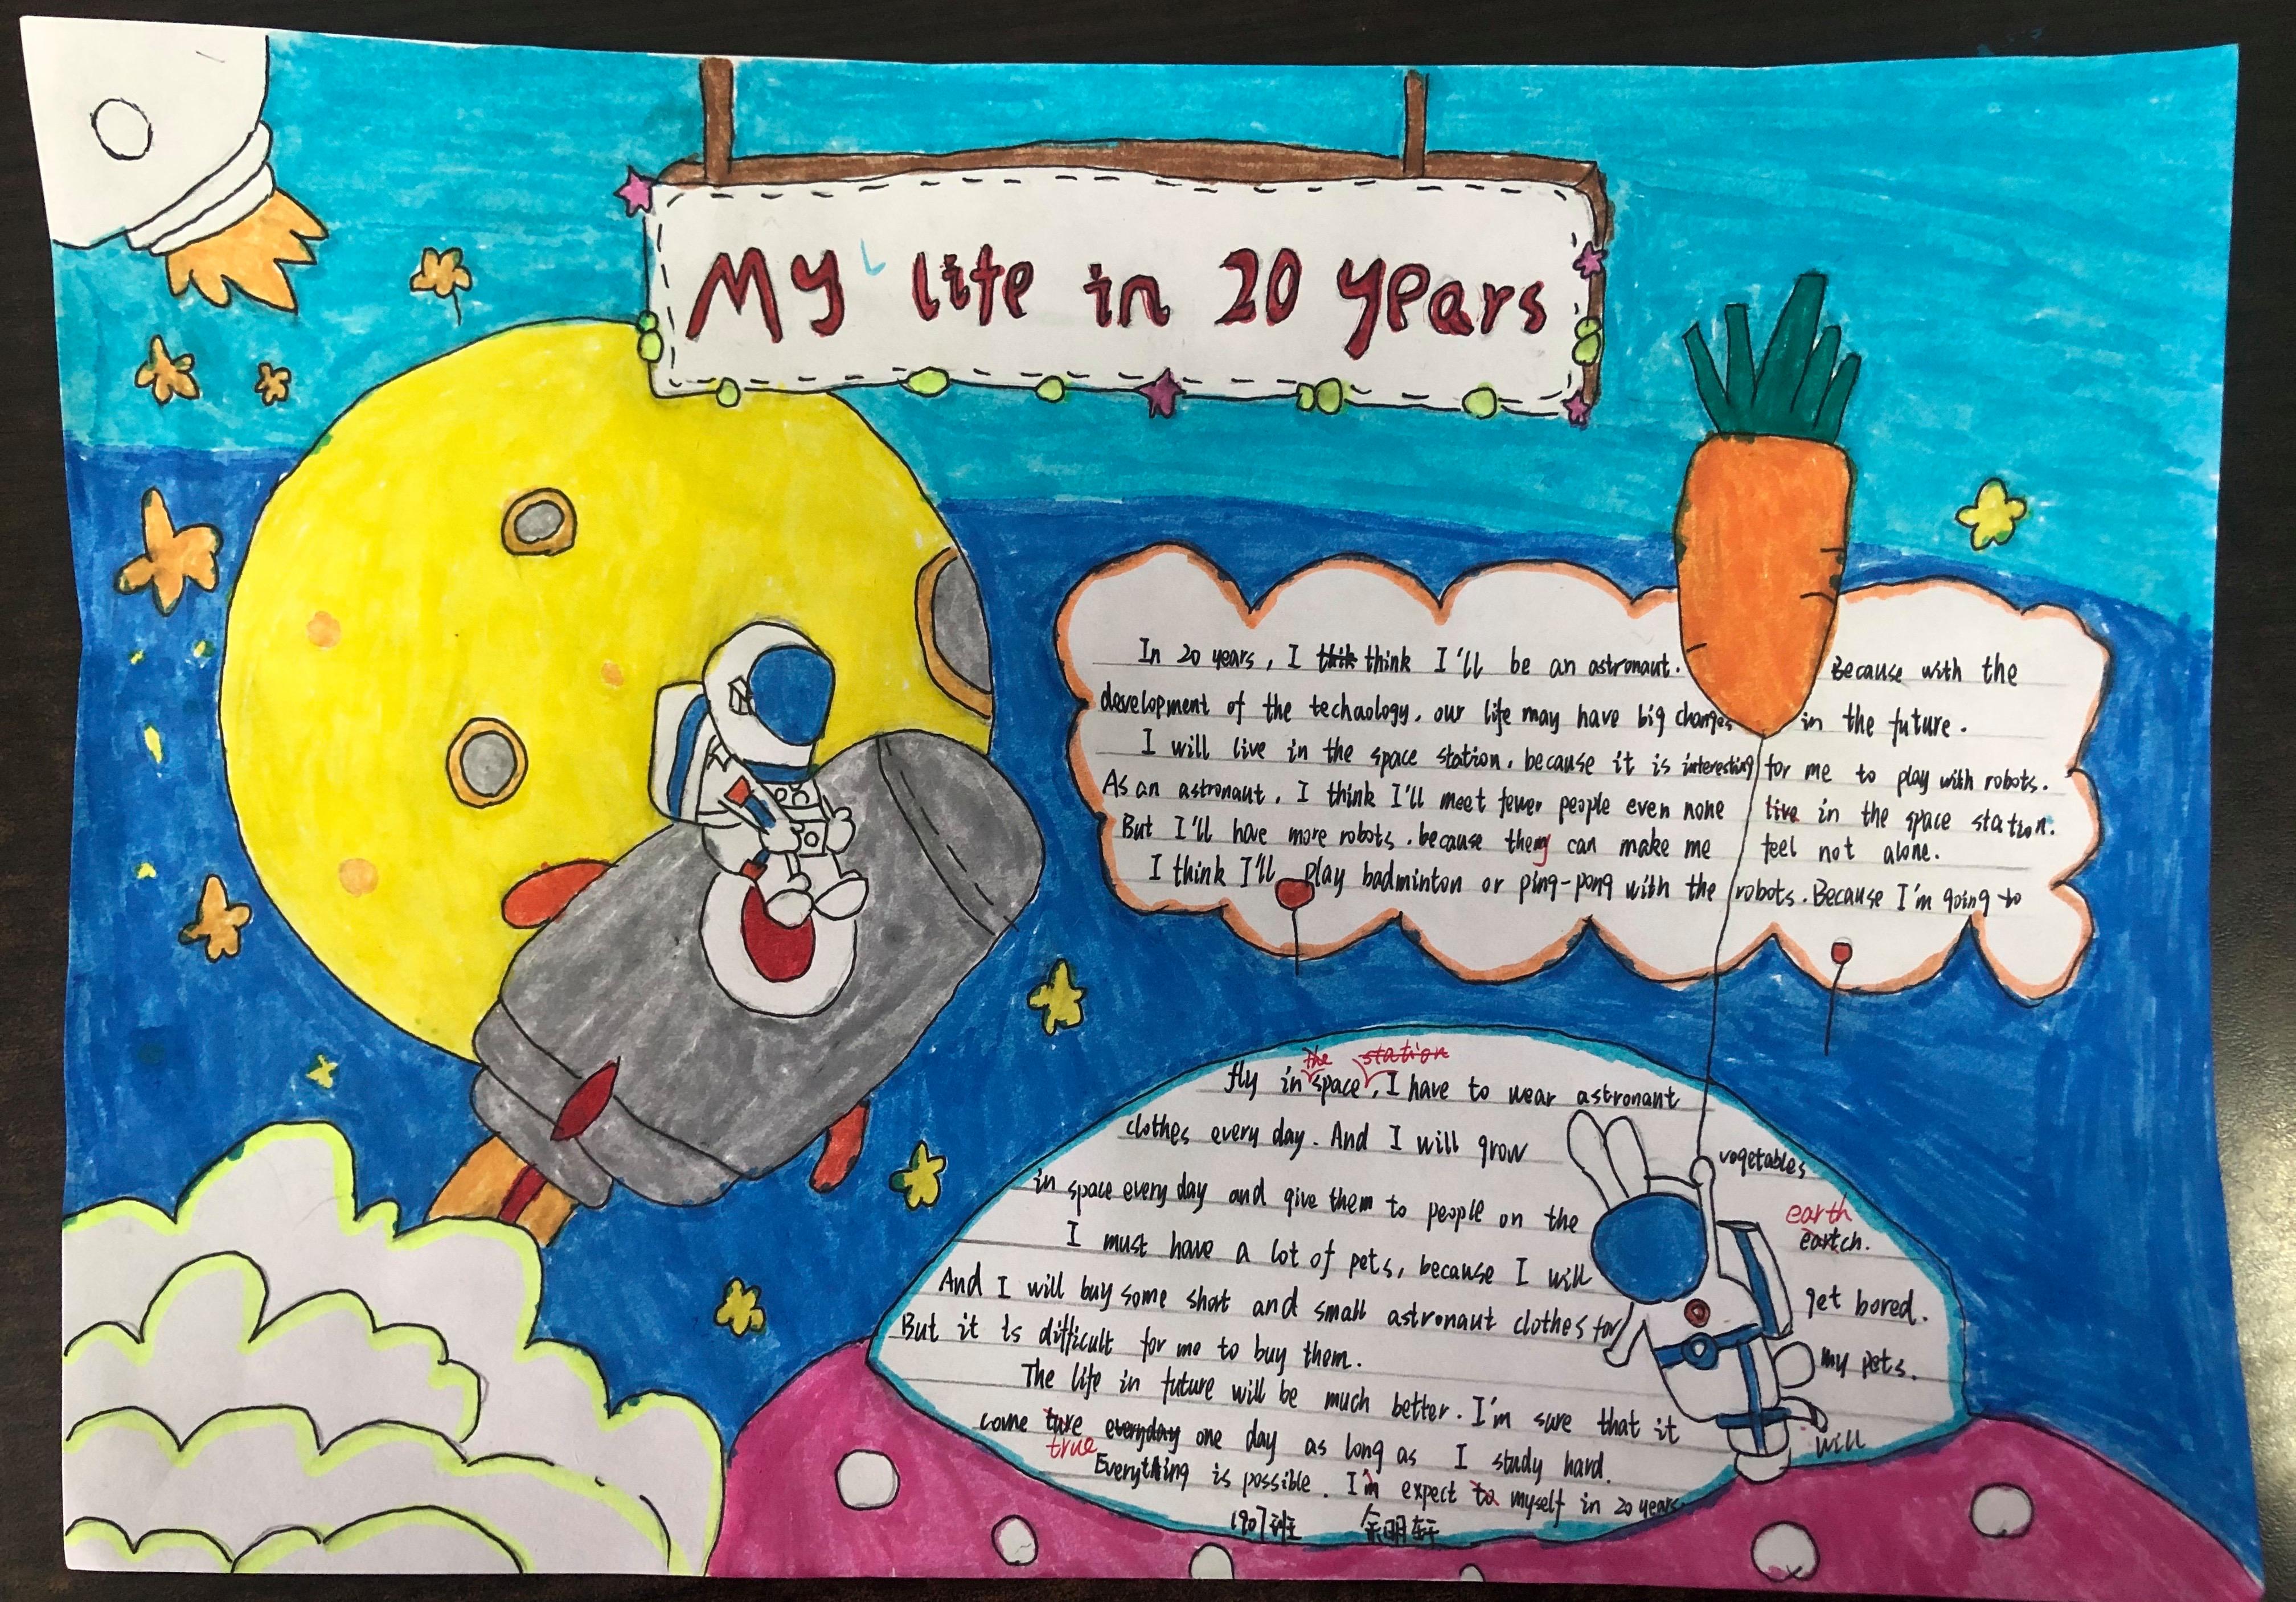 My life in 20 years
In 20 years, I thik think I'll be an astronaut. Because with the
development of the technology, our life may have big changes in the future.
I will live in the space station, because it is interesting for me to play with robots.
As an astronaut, I think I'll meet fewer people even none live in the space station.
But I'll have more robots, because they can make me feel not alone.
I think I'll play badminton or ping-pong with the robots. Because I'm going to
the station
fly in space, I have to wear astronaut
clothes every day. And I will grow vegetables
in space every day and give them to people on the eartch.
earth
I must have a lot of pets, because I will get bored.
And I will buy some short and small astronaut clothes for my pets.
But it is difficult for me to buy them.
The life in future will be much better. I'm sure that it will
come ture everyday one day as long as I study hard.
true
Everything is possible. I'm expect to myself in 20 years.
1907班 余明轩